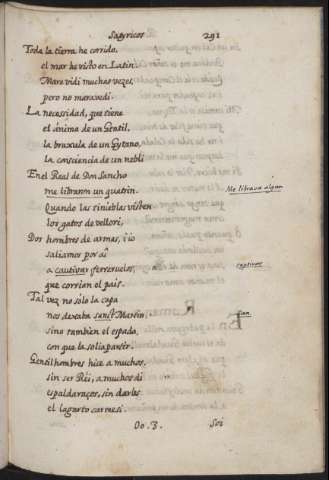 Satyricos 291
Toda la tierra he corrido,
el mar he visto en Latin.
Mare vidi muchas vezes,
pero no maravedi.
La necessidad, que tiene
el ánima de un Gentil,
la bruxula de un Gytano,
la consciencia de un neblí
En el Real de Don Sancho
me libraron un quatrin. Me librava algun
Quando las tinieblas visten
los gatos de vellorí,
Dos hombres de armas, i ío
saliamos por aì
a cautivar ferreruelos, captivar
que corrian el pais.
Tal vez no sólo la capa
nos dexaba sanct Martin, San
sino tambien el espada,
con que la solia partir.
Gentilhombres hize a muchos,
sin ser Rëi, a muchos di
espaldaraços, sin darles
el lagarto carmesí.
Oo. 3. Soi